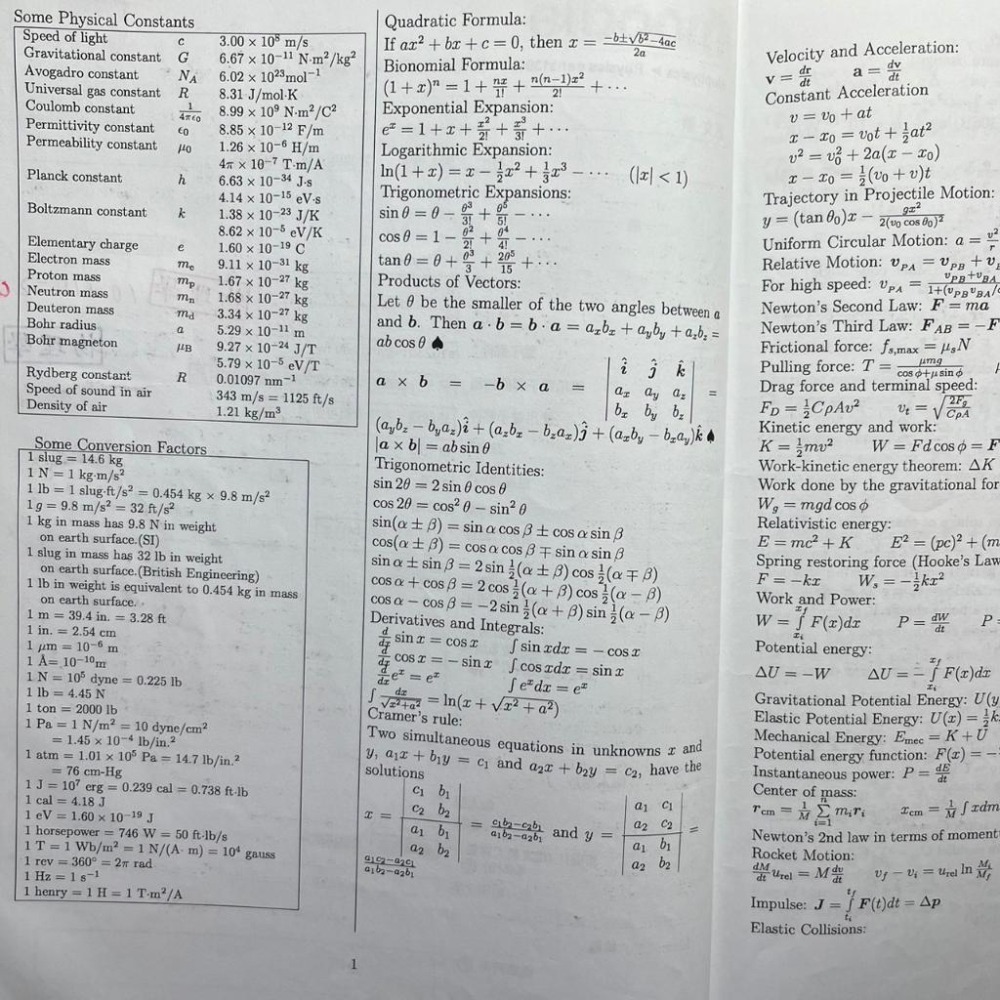 Some Physical Constants
Speed of light c 3.00 × 10⁸ m/s
Gravitational constant G 6.67 × 10⁻¹¹ N·m²/kg²
Avogadro constant N_A 6.02 × 10²³mol⁻¹
Universal gas constant R 8.31 J/mol·K
Coulomb constant 1/4πϵ₀ 8.99 × 10⁹ N·m²/C²
Permittivity constant ϵ₀ 8.85 × 10⁻¹² F/m
Permeability constant μ₀ 1.26 × 10⁻⁶ H/m
4π × 10⁻⁷ T·m/A
Planck constant h 6.63 × 10⁻³⁴ J·s
4.14 × 10⁻¹⁵ eV·s
Boltzmann constant k 1.38 × 10⁻²³ J/K
8.62 × 10⁻⁵ eV/K
Elementary charge e 1.60 × 10⁻¹⁹ C
Electron mass m_e 9.11 × 10⁻³¹ kg
Proton mass m_p 1.67 × 10⁻²⁷ kg
Neutron mass m_n 1.68 × 10⁻²⁷ kg
Deuteron mass m_d 3.34 × 10⁻²⁷ kg
Bohr radius a 5.29 × 10⁻¹¹ m
Bohr magneton μ_B 9.27 × 10⁻²⁴ J/T
5.79 × 10⁻⁵ eV/T
Rydberg constant R 0.01097 nm⁻¹
Speed of sound in air 343 m/s = 1125 ft/s
Density of air 1.21 kg/m³
Some Conversion Factors
1 slug = 14.6 kg
1 N = 1 kg·m/s²
1 lb = 1 slug·ft/s² = 0.454 kg × 9.8 m/s²
1 g = 9.8 m/s² = 32 ft/s²
1 kg in mass has 9.8 N in weight
on earth surface.(SI)
1 slug in mass has 32 lb in weight
on earth surface.(British Engineering)
1 lb in weight is equivalent to 0.454 kg in mass
on earth surface.
1 m = 39.4 in. = 3.28 ft
1 in. = 2.54 cm
1 μm = 10⁻⁶ m
1 Å= 10⁻¹⁰m
1 N = 10⁵ dyne = 0.225 lb
1 lb = 4.45 N
1 ton = 2000 lb
1 Pa = 1 N/m² = 10 dyne/cm²
= 1.45 × 10⁻⁴ lb/in.²
1 atm = 1.01 × 10⁵ Pa = 14.7 lb/in.²
= 76 cm-Hg
1 J = 10⁷ erg = 0.239 cal = 0.738 ft·lb
1 cal = 4.18 J
1 eV = 1.60 × 10⁻¹⁹ J
1 horsepower = 746 W = 50 ft·lb/s
1 T = 1 Wb/m² = 1 N/(A· m) = 10⁴ gauss
1 rev = 360° = 2π rad
1 Hz = 1 s⁻¹
1 henry = 1 H = 1 T·m²/A
Quadratic Formula:
If ax² + bx + c = 0, then x = (−b±√(b²−4ac))/2a
Bionomial Formula:
(1 + x)ⁿ = 1 + nx/1! + n(n−1)x²/2! + ···
Exponential Expansion:
eˣ = 1 + x + x²/2! + x³/3! + ···
Logarithmic Expansion:
ln(1 + x) = x − ½x² + ⅓x³ − ··· (|x| < 1)
Trigonometric Expansions:
sin θ = θ − θ³/3! + θ⁵/5! − ···
cos θ = 1 − θ²/2! + θ⁴/4! − ···
tan θ = θ + θ³/3 + 2θ⁵/15 + ···
Products of Vectors:
Let θ be the smaller of the two angles between a
and b. Then a · b = b · a = a_xb_x + a_yb_y + a_zb_z =
ab cos θ ♠
a × b = −b × a = | î ĵ k̂ ; a_x a_y a_z ; b_x b_y b_z | =
(a_yb_z − b_ya_z)î + (a_zb_x − b_za_x)ĵ + (a_xb_y − b_xa_y)k̂ ♠
|a × b| = ab sin θ
Trigonometric Identities:
sin 2θ = 2 sin θ cos θ
cos 2θ = cos² θ − sin² θ
sin(α ± β) = sin α cos β ± cos α sin β
cos(α ± β) = cos α cos β ∓ sin α sin β
sin α ± sin β = 2 sin ½(α ± β) cos ½(α ∓ β)
cos α + cos β = 2 cos ½(α + β) cos ½(α − β)
cos α − cos β = −2 sin ½(α + β) sin ½(α − β)
Derivatives and Integrals:
d/dx sin x = cos x ∫ sin xdx = − cos x
d/dx cos x = − sin x ∫ cos xdx = sin x
d/dx eˣ = eˣ ∫ eˣdx = eˣ
∫ dx/√(x²+a²) = ln(x + √(x² + a²))
Cramer's rule:
Two simultaneous equations in unknowns x and
y, a₁x + b₁y = c₁ and a₂x + b₂y = c₂, have the
solutions
x = | c₁ b₁ ; c₂ b₂ | / | a₁ b₁ ; a₂ b₂ | = (c₁b₂−c₂b₁)/(a₁b₂−a₂b₁) and y = | a₁ c₁ ; a₂ c₂ | / | a₁ b₁ ; a₂ b₂ | =
(a₁c₂−a₂c₁)/(a₁b₂−a₂b₁)
1
Velocity and Acceleration:
v = dr/dt a = dv/dt
Constant Acceleration
v = v₀ + at
x − x₀ = v₀t + ½at²
v² = v₀² + 2a(x − x₀)
x − x₀ = ½(v₀ + v)t
Trajectory in Projectile Motion:
y = (tan θ₀)x − gx²/2(v₀ cos θ₀)²
Uniform Circular Motion: a = v²/r
Relative Motion: v_PA = v_PB + v
For high speed: v_PA = (v_PB+v_BA)/1+(v_PBv_BA/
Newton's Second Law: F = ma
Newton's Third Law: F_AB = −F
Frictional force: f_s,max = μ_sN
Pulling force: T = μmg/(cos ϕ+μ sin ϕ)
Drag force and terminal speed:
F_D = ½CρAv² v_t = √(2F_g/CρA)
Kinetic energy and work:
K = ½mv² W = Fd cos ϕ = F
Work-kinetic energy theorem: ΔK
Work done by the gravitational for
W_g = mgd cos ϕ
Relativistic energy:
E = mc² + K E² = (pc)² + (m
Spring restoring force (Hooke's Law
F = −kx W_s = −½kx²
Work and Power:
W = ∫_{x_i}^{x_f} F(x)dx P = dW/dt P =
Potential energy:
ΔU = −W ΔU = −∫_{x_i}^{x_f} F(x)dx
Gravitational Potential Energy: U(y
Elastic Potential Energy: U(x) = ½k
Mechanical Energy: E_mec = K + U
Potential energy function: F(x) = −
Instantaneous power: P = dE/dt
Center of mass:
r_cm = 1/M ∑_{i=1}^{n} m_ir_i x_cm = 1/M ∫ xdm
Newton's 2nd law in terms of moment
Rocket Motion:
dM/dt u_rel = M dv/dt v_f − v_i = u_rel ln M_i/M_f
Impulse: J = ∫_{t_i}^{t_f} F(t)dt = Δp
Elastic Collisions: